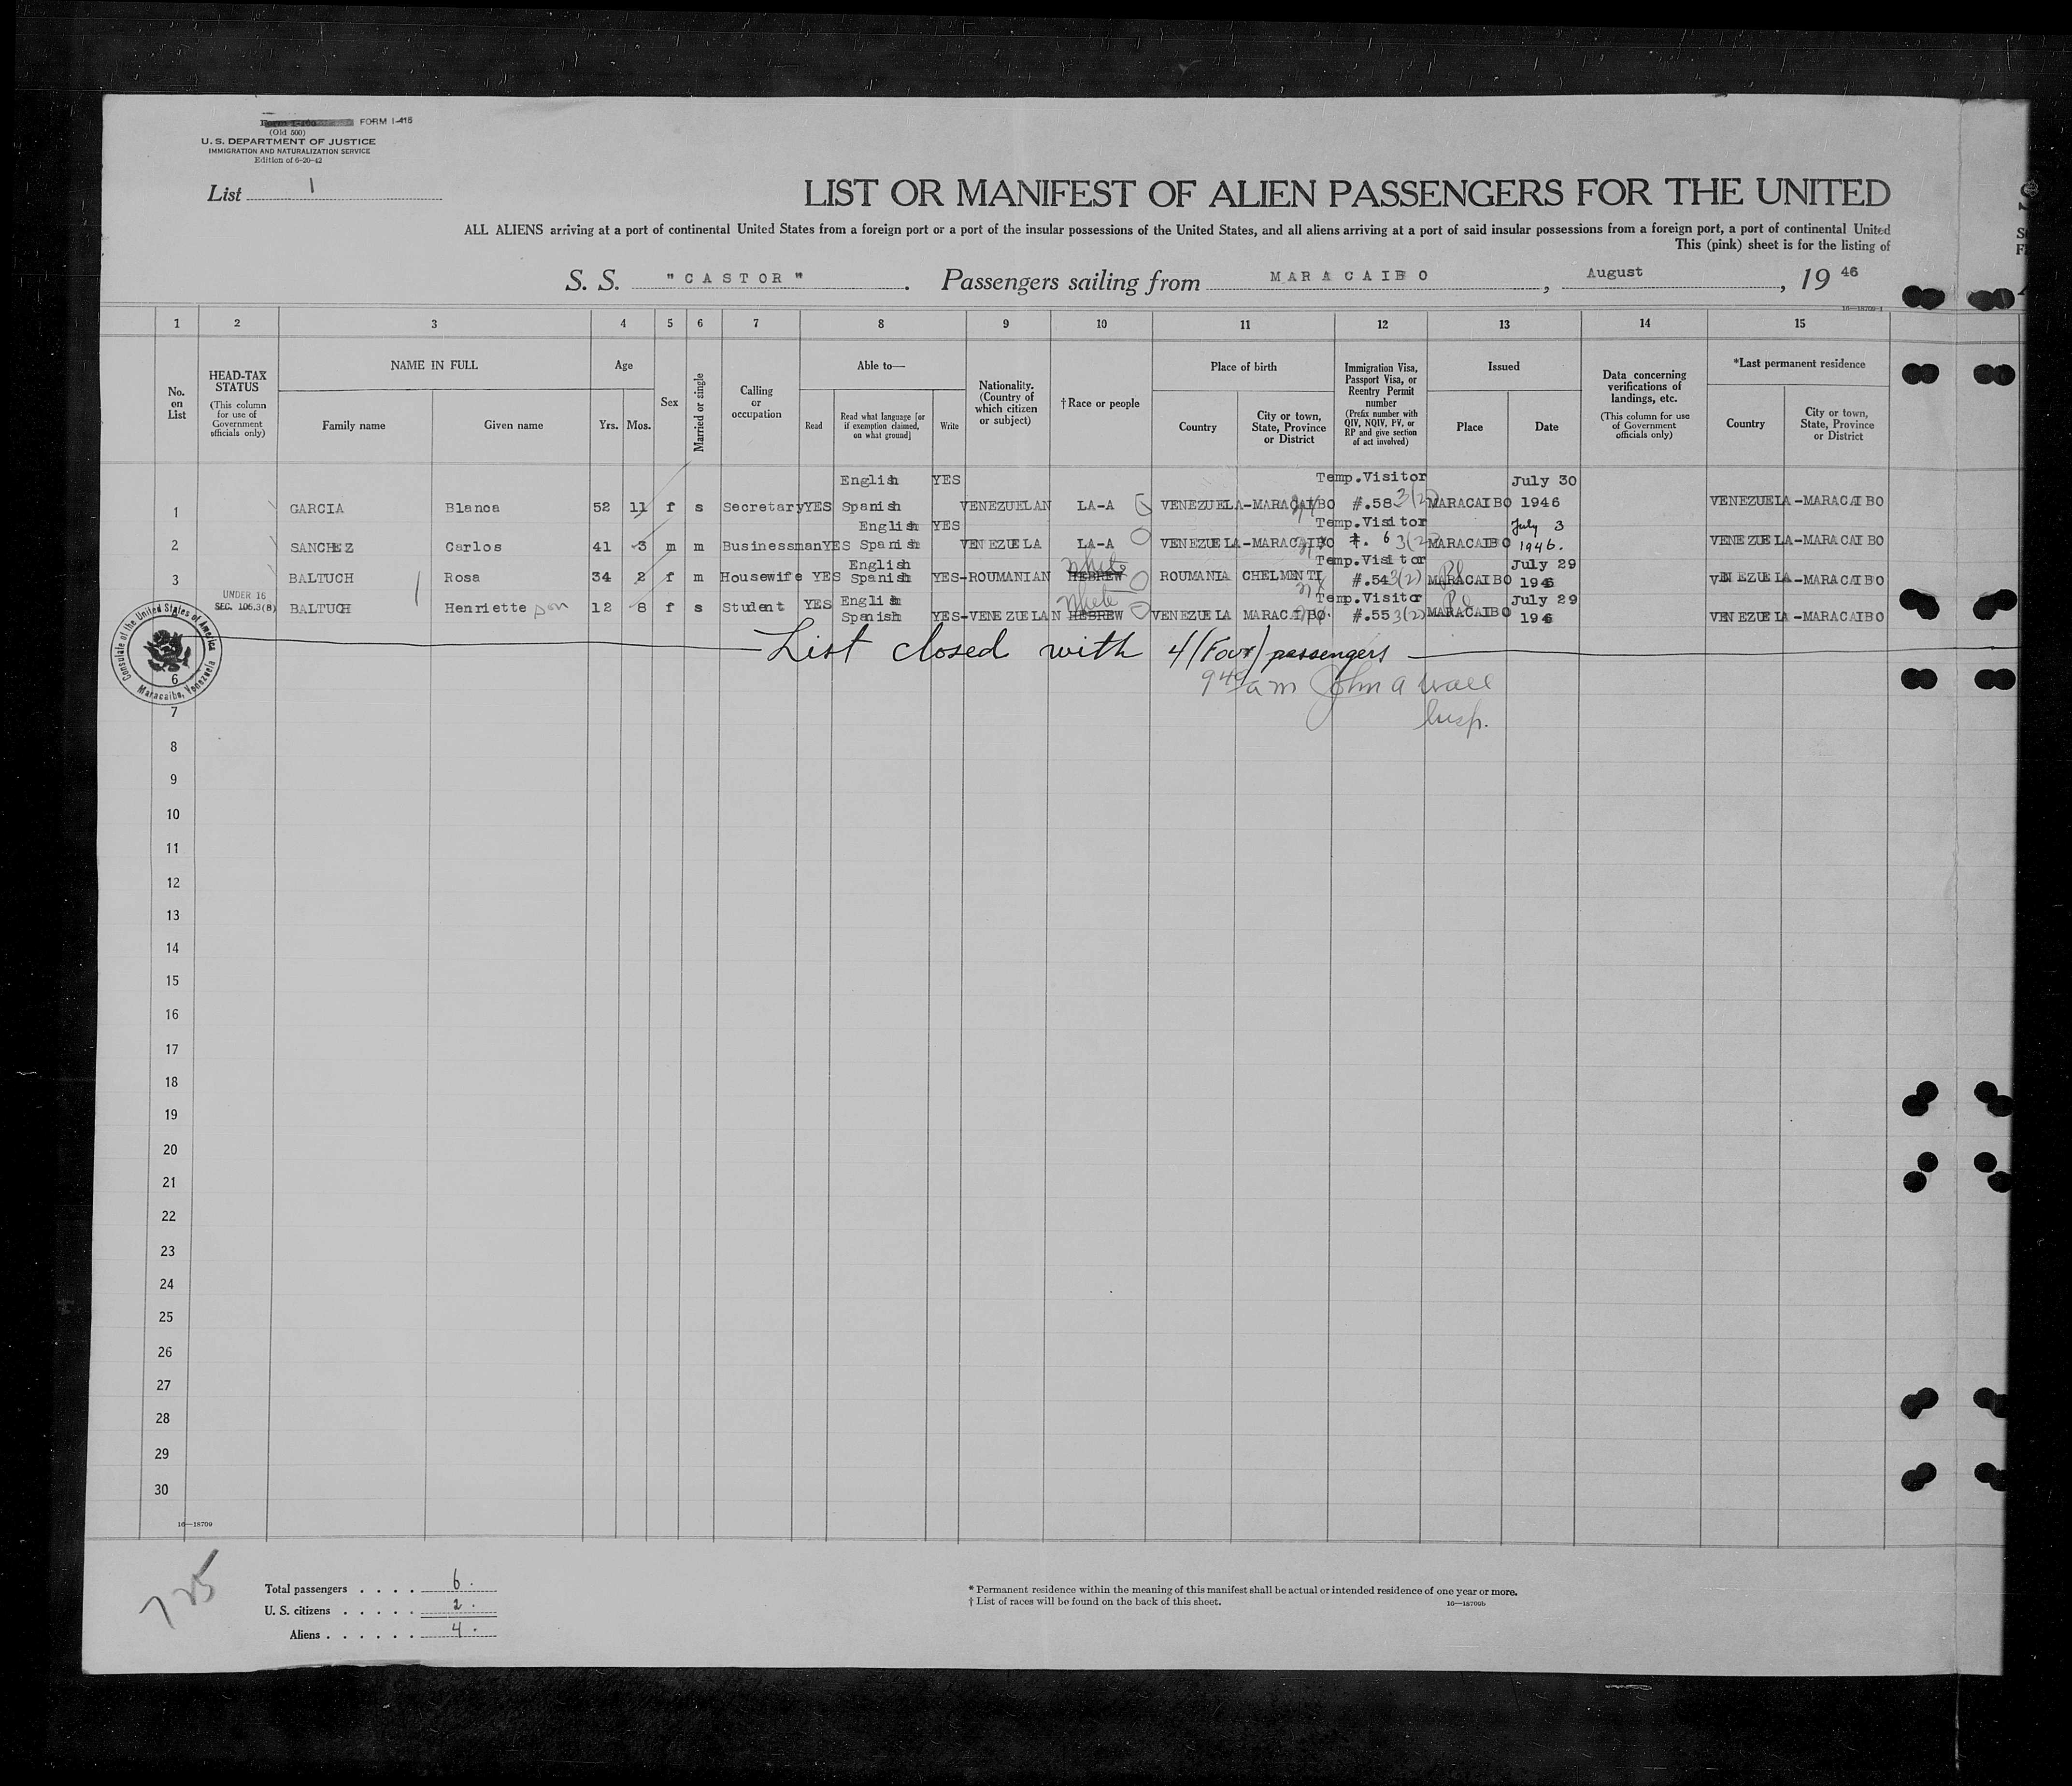 FORM I-415
(Old 500)
U. S. DEPARTMENT OF JUSTICE
IMMIGRATION AND NATURALIZATION SERVICE
Edition of 6-20-42
List 1
LIST OR MANIFEST OF ALIEN PASSENGERS FOR THE UNITED
ALL ALIENS arriving at a port of continental United States from a foreign port or a port of the insular possessions of the United States, and all aliens arriving at a port of said insular possessions from a foreign port, a port of continental United
This (pink) sheet is for the listing of
S. S. "CASTOR". Passengers sailing from MARACAIBO, August, 19 46
16—18709-1
1 2 3 4 5 6 7 8 9 10 11 12 13 14 15
No. on List
HEAD-TAX STATUS (This column for use of Government officials only)
NAME IN FULL
Family name
Given name
Age
Yrs. Mos.
Sex
Married or single
Calling or occupation
Able to—
Read
Read what language [or if exemption claimed, on what ground]
Write
Nationality. (Country of which citizen or subject)
†Race or people
Place of birth
Country
City or town, State, Province or District
Immigration Visa, Passport Visa, or Reentry Permit number (Prefix number with QIV, NQIV, PV, or RP and give section of act involved)
Issued
Place
Date
Data concerning verifications of landings, etc. (This column for use of Government officials only)
*Last permanent residence
Country
City or town, State, Province or District
English YES Temp.Visitor July 30
1 GARCIA Blanca 52 11 f s Secretary YES Spanish VENEZUELAN LA-A VENEZUELA-MARACAIBO #.58 3(2) MARACAIBO 1946 VENEZUELA-MARACAIBO
English YES Temp.Visitor July 3
2 SANCHEZ Carlos 41 3 m m Businessman YES Spanish VENEZUELA LA-A VENEZUELA-MARACAIBO #. 6 3(2) MARACAIBO 1946. VENEZUELA-MARACAIBO
English White Temp.Visitor July 29
3 BALTUCH Rosa 34 2 f m Housewife YES Spanish YES-ROUMANIAN HEBREW ROUMANIA CHELMENTI #.54 3(2) MARACAIBO 1946 VENEZUELA-MARACAIBO
UNDER 16 English White Temp.Visitor July 29
SEC. 106.3(8) BALTUCH Henriette 12 8 f s Student YES Spanish YES-VENEZUELAN HEBREW VENEZUELA MARACAIBO. #.55 3(2) MARACAIBO 1946 VENEZUELA-MARACAIBO
Consulate of the United States of America
Maracaibo, Venezuela
List closed with 4 (Four) passengers
9 40 am John A Wall
Insp.
6
7
8
9
10
11
12
13
14
15
16
17
18
19
20
21
22
23
24
25
26
27
28
29
30
16—18709
725
Total passengers . . . . 6.
U. S. citizens . . . . . 2.
Aliens . . . . . . 4.
* Permanent residence within the meaning of this manifest shall be actual or intended residence of one year or more.
† List of races will be found on the back of this sheet.
16—18709b